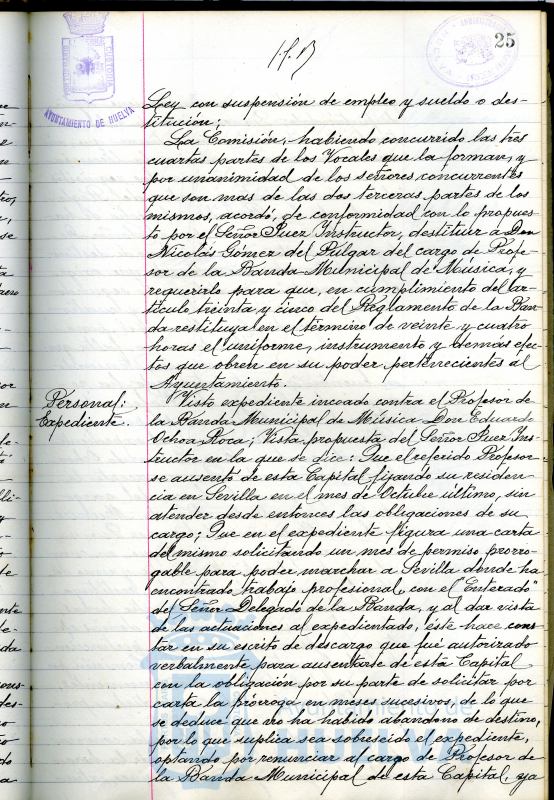 25
AYUNTAMIENTO DE HUELVA
Ley con suspensión de empleo y sueldo o des-
titución;
La Comisión, habiendo concurrido las tres
cuartas partes de los Vocales que la forman, y
por unanimidad de los señores concurrentes
que son mas de las dos terceras partes de los
mismos, acordó, de conformidad con lo propues-
to por el Señor Juez Instructor, destituir á Don
Nicolás Gómez del Pulgar del cargo de Profe-
sor de la Banda Municipal de Música, y
requerirlo para que, en cumplimiento del ar-
tículo treinta y cinco del Reglamento de la Ban-
da restituya en el término de veinte y cuatro
horas el uniforme, instrumento y demás efec-
tos que obren en su poder pertenecientes al
Ayuntamiento.
Personal:
Expediente.
Visto expediente incoado contra el Profesor de
la Banda Municipal de Música Don Eduardo
Ochoa Roca; Vista propuesta del Señor Juez Ins-
tructor en la que se dice: Que el referido Profesor
se ausentó de esta Capital fijando su residen-
cia en Sevilla en el mes de Octubre último, sin
atender desde entonces las obligaciones de su
cargo; Que en el expediente figura una carta
del mismo solicitando un mes de permiso prorro-
gable para poder marchar a Sevilla donde ha
encontrado trabajo profesional, con el "Enterado"
del Señor Delegado de la Banda, y al dar vista
de las actuaciones al expedientado, éste hace cons-
tar en su escrito de descargo que fué autorizado
verbalmente para ausentarse de esta Capital
con la obligación por su parte de solicitar por
carta la prórroga en meses sucesivos, de lo que
se deduce que no ha habido abandono de destino,
por lo que suplica sea sobreseido el expediente,
optando por renunciar al cargo de Profesor de
la Banda Municipal de esta Capital, ya
Ayuntamiento de
HUELVA